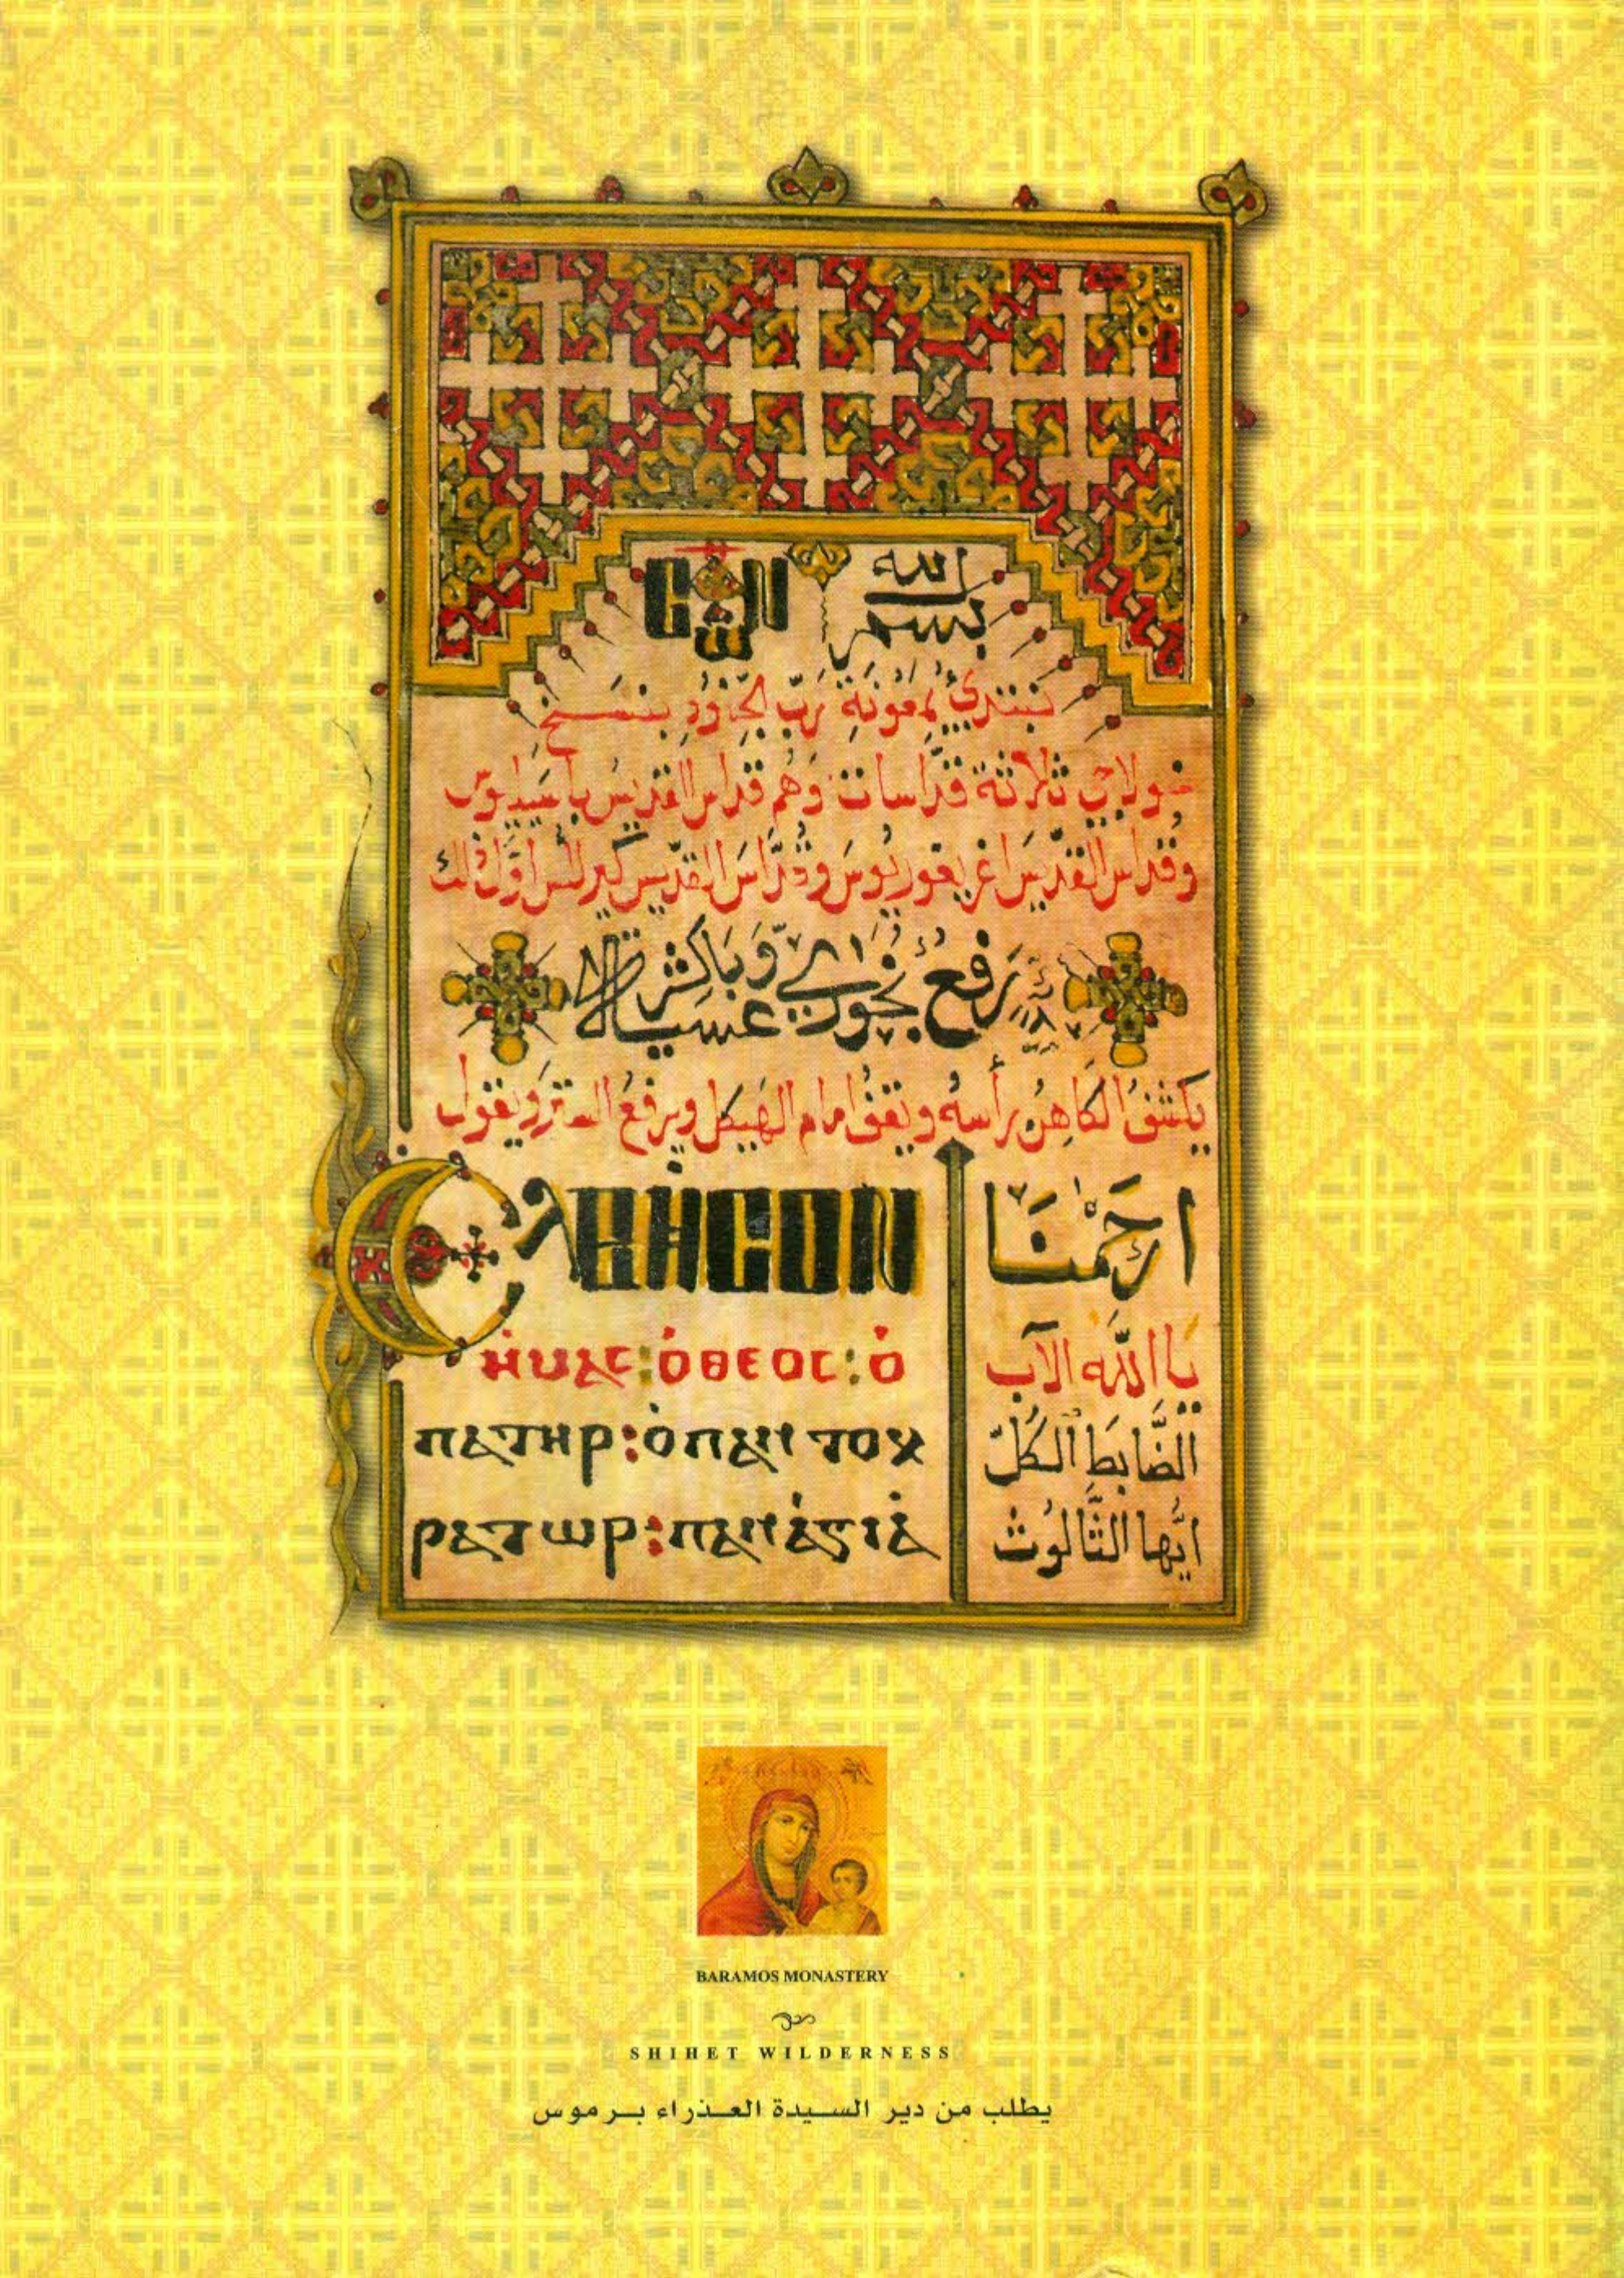 بسم الله
نبتدئ بمعونة رب الجنود بنسخ
خولاجي ثلاثة قداسات وهم قداس القديس باسيليوس
وقداس القديس اغريغوريوس وقداس القديس كيرلس اول ذلك
رفع بخور عشية وباكر
يكشف الكاهن رأسه ويقف امام الهيكل ويرفع الستر ويقول
Ⲉⲗⲉⲏⲥⲟⲛ
ارحمنا
ⲏⲙⲁⲥ : ⲟ̀ⲑⲉⲟⲥ : ⲟ̀
يا الله الآب
ⲡⲁⲧⲏⲣ : ⲟ̀ⲡⲁⲛⲧⲟⲕ
الضَّابط الكُلّ
ⲣⲁⲧⲱⲣ : ⲡⲁⲛⲁ̀ⲅⲓⲁ̀
ايُّها الثَّالُوث
BARAMOS MONASTERY
SHIHET WILDERNESS
يطلب من دير السيدة العذراء برموس